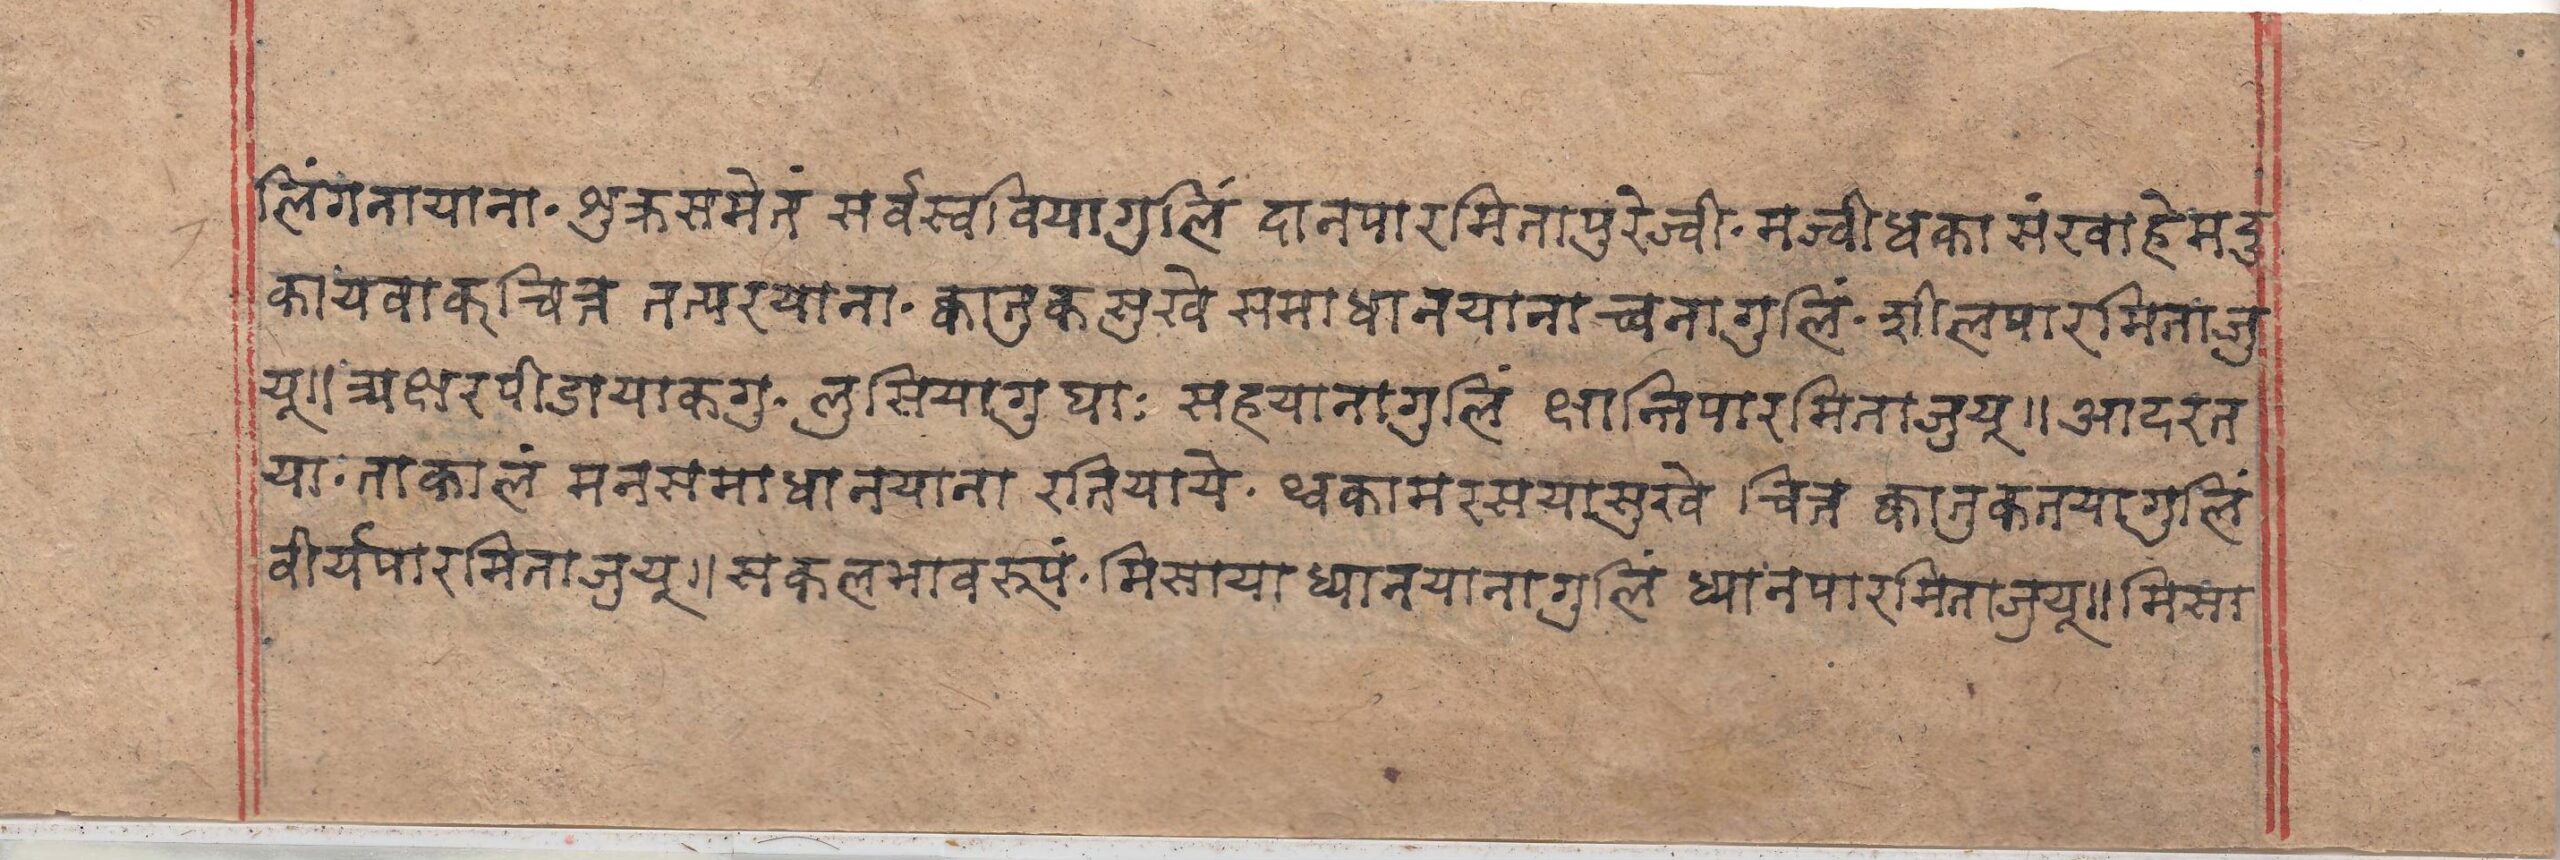 लिंगनायाना· शुक्रसमेतं सर्वस्वबियागुलिं दानपारमितापुरेज्वी· मज्वीधका संखाहेमदु
कायवाक्चित्त तत्परयाना· क्वातुक सुखे समाधानयानाच्वनागुलिं· शीलपारमिताजु
यू॥ अक्षरपीडायाकगु· लुसियागु घाः सहयानागुलिं क्षान्तिपारमिताजुयू॥ आदरत
या· ताकालं मनसमाधानयाना रतियाये· थ्वकामरसयासुखे चित्त क्वातुकतयागुलिं
वीर्यपारमिताजुयू॥ सकलभावरूपं· मिसाया ध्यानयानागुलिं ध्यानपारमिताजुयू॥ मिसा